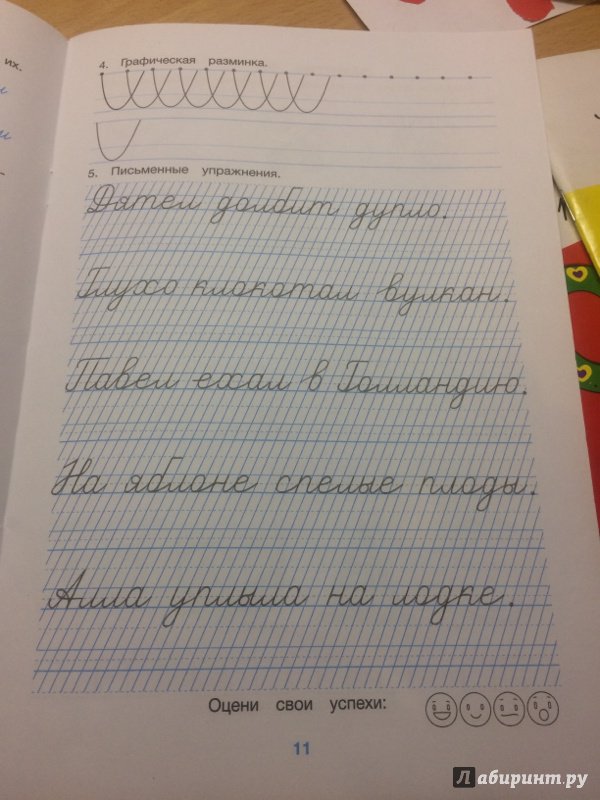 их.
4. Графическая разминка.
5. Письменные упражнения.
Дятел долбит дупло.
Глухо клокотал вулкан.
Павел ехал в Голландию.
На яблоне спелые плоды.
Алла уплыла на лодке.
Оцени свои успехи:
11
Лабиринт.ру